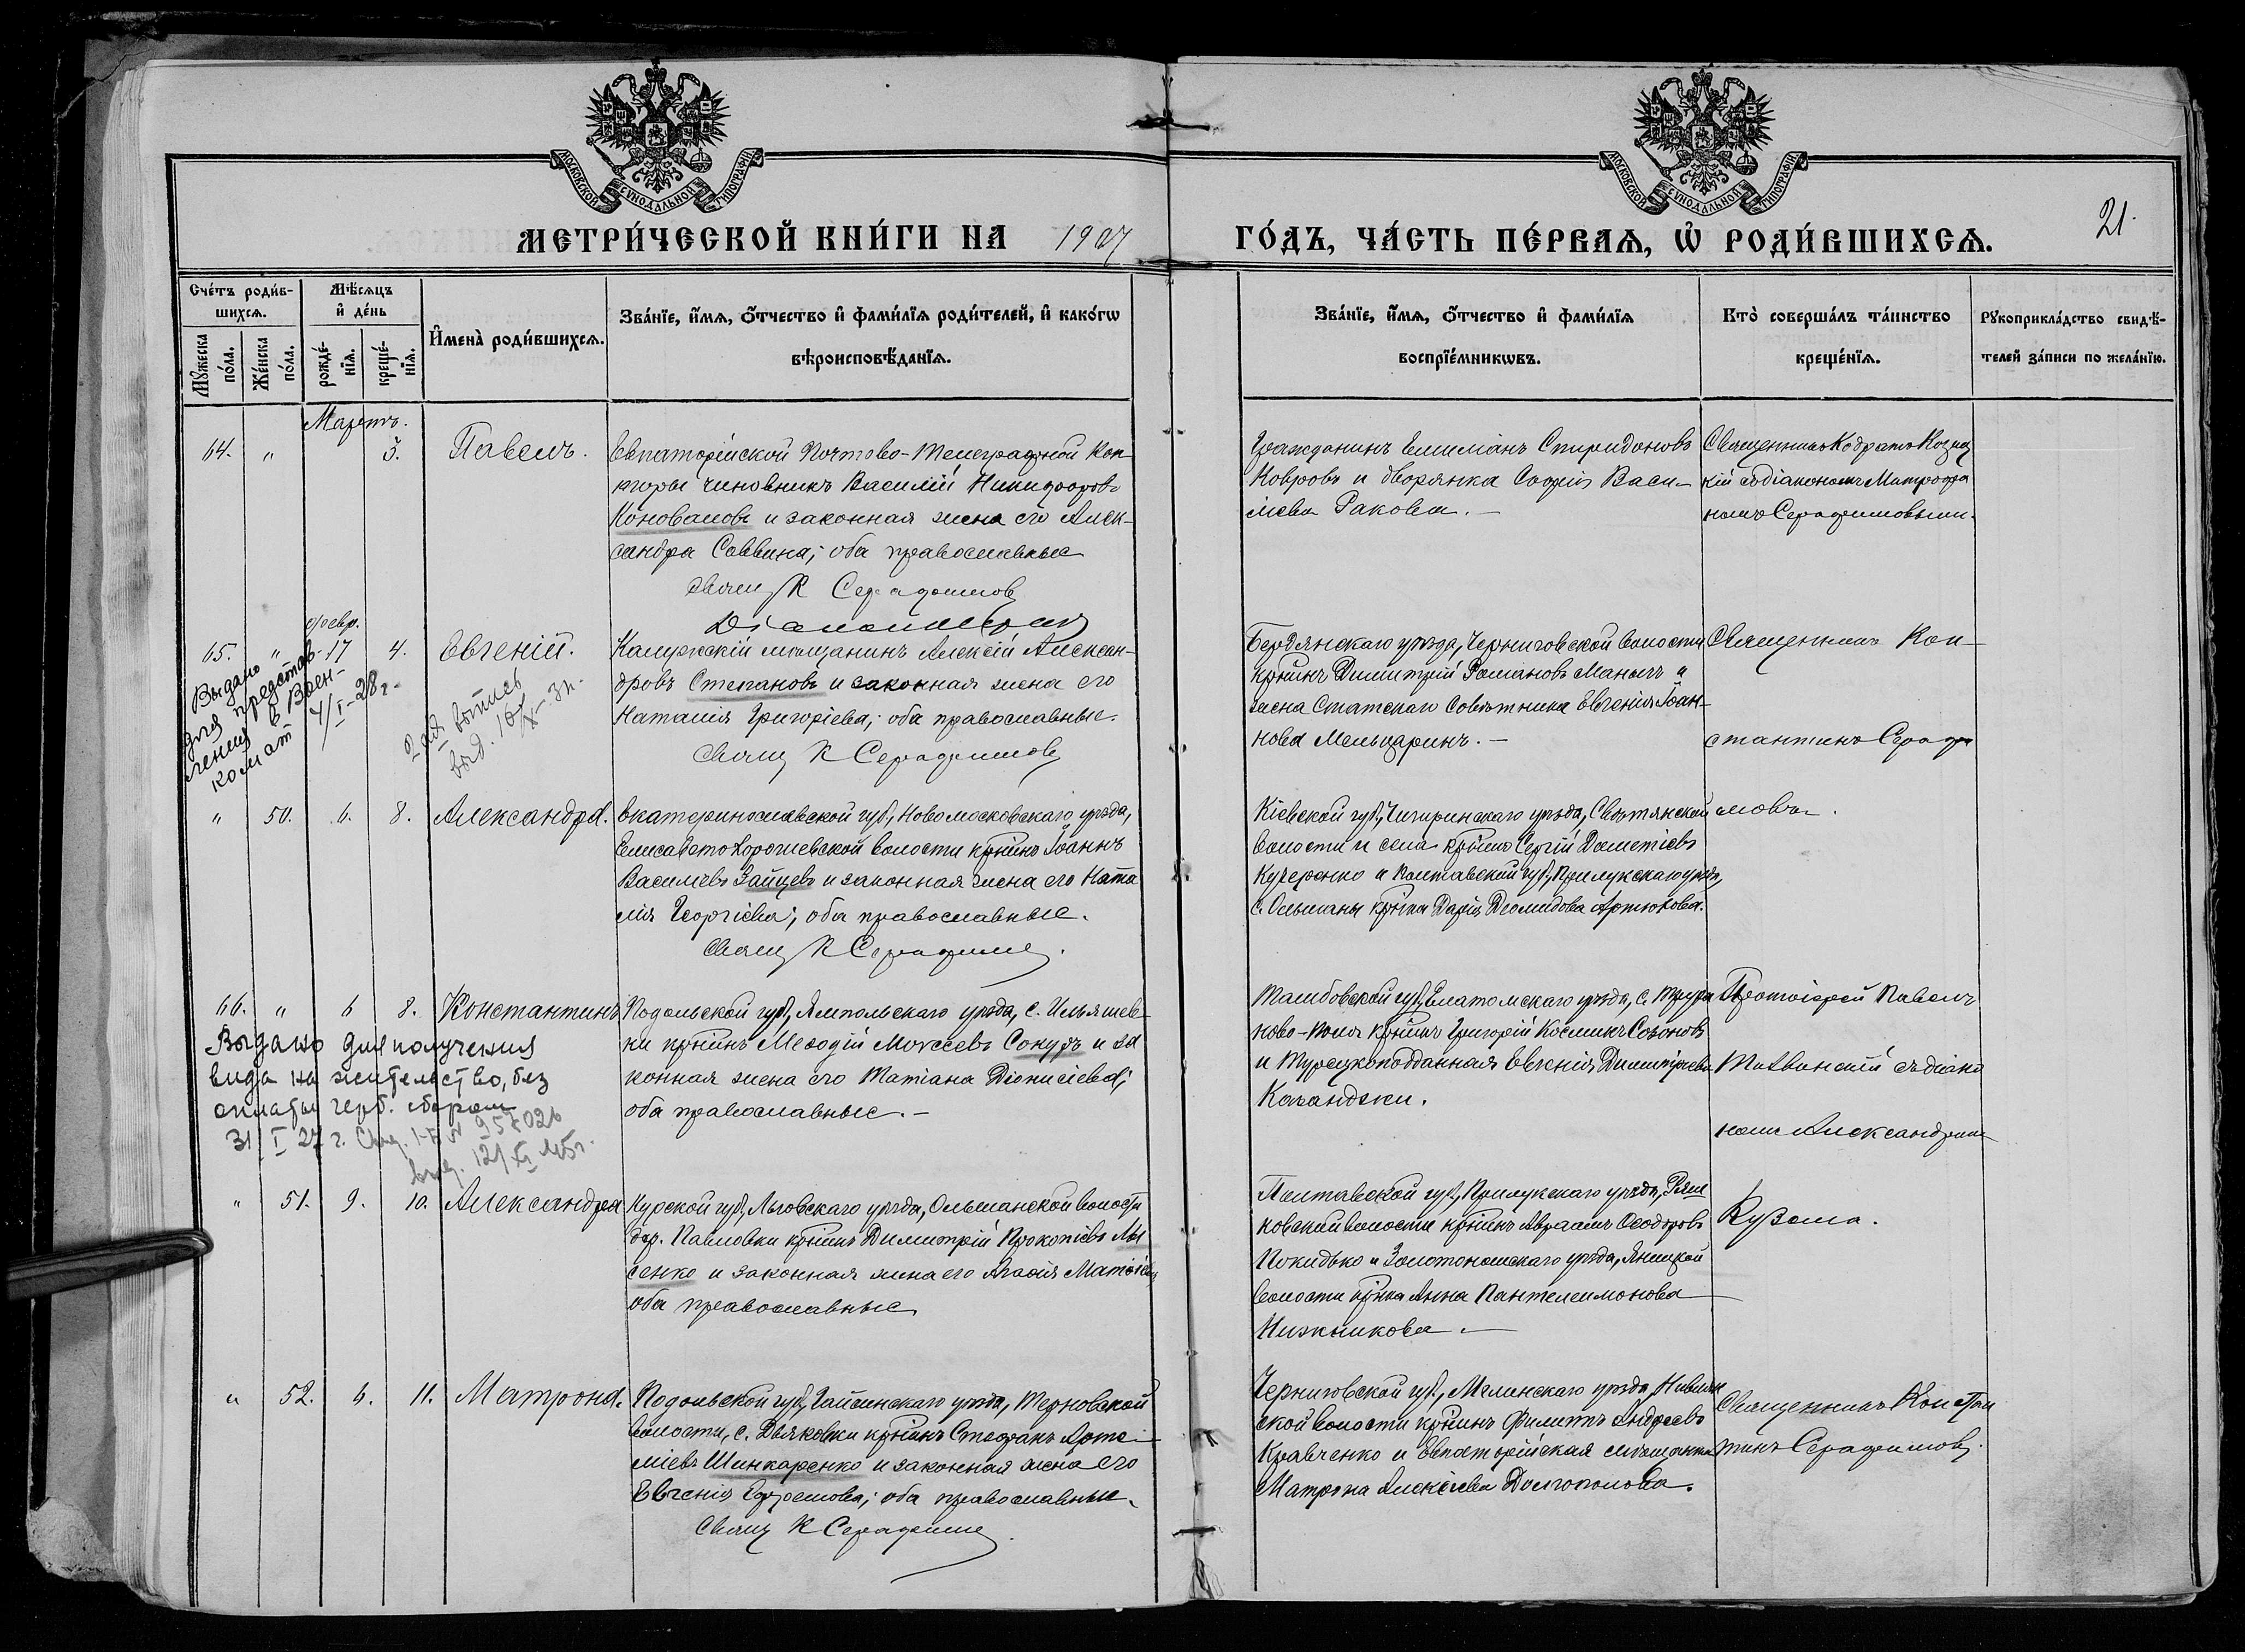 МОСКОВСКОЙ СѴНОДАЛЬНОЙ ТИПОГРАФІИ
МОСКОВСКОЙ СѴНОДАЛЬНОЙ ТИПОГРАФІИ
МЕТРИ́ЧЕСКОЙ КНИ́ГИ НА 1907
ГО́ДЪ, ЧА́СТЬ ПЕ́РВАѦ, Ѡ҆ РОДИ́ВШИХСѦ.
21.
Сче́тъ роди́в-
шихсѧ.
Мѣ́сѧцъ
и҆ де́нь
Мꙋ́жеска по́ла.
Же́нска по́ла.
рожде́-нїѧ.
креще́-нїѧ.
И҆мена̀ роди́вшихсѧ.
Зва́нїе, и҆́мѧ, ѻ҆́тчество и҆ фами́лїѧ роди́телей, и҆ како́гѡ
вѣроисповѣ́данїѧ.
Зва́нїе, и҆́мѧ, ѻ҆́тчество и҆ фами́лїѧ
воспрїе́мникѡвъ.
Кто̀ соверша́лъ та́инство
креще́нїѧ.
Рꙋкоприкла́дство свидѣ́-
телей за́писи по жела́нїю.
Мартъ.
64. " 3. Павелъ.
Евпаторійской Почтово-Телеграфной Кон-
торы чиновникъ Василій Никифоровъ
Коноваловъ и законная жена его Алек-
сандра Саввина; оба православные
Свящ К Серафимов
Гражданинъ Емиліанъ Спиридоновъ
Ковровъ и дворянка Софія Васи-
ліева Ракова.
Священникъ Кодратъ Козиц
кій съ діакономъ Митрофа
номъ Серафимовымъ.
Февр.
65. " 17 4. Евгеній.
Калужскій мѣщанинъ Алексій Александ-
дровъ Степановъ и законная жена его
Наталія Григоріева; оба православные.
Свящ К Серафимовъ
Выдано
для представ-
ления в Воен-
комат 4/I-28г.
2ая выпись
выд. 16/X-31.
Бердянскаго уѣзда, Черниговской волости
кр-нинъ Димитрій Романовъ и
жена Статскаго Совѣтника Евгенія Іоан-
нова Мельцаринъ.
Священникъ Кон-
стантинъ Серафи
мовъ.
" 50. 6. 8. Александра.
Екатеринославской губ., Новомосковскаго уѣзда,
Елисавето-Хорошевской волости кр-нинъ Іоаннъ
Васильевъ Зайцевъ и законная жена его Ната
лія Георгіева; оба православные.
Свящ К Серафимов.
Кіевской губ., Чигиринскаго уѣзда,
волости и села кр-нинъ Сергій Дометіевъ
Кучеренко и Полтавской губ., Прилукскаго уѣзда,
с. Ольшаны кр-нка Дарія Діомидова Артюхова.
66. " 6 8. Константинъ
Подольской губ., Ямпольскаго уѣзда, с. Ильяшев-
ки кр-нинъ Меѳодій Моисеевъ Сокуръ и за
конная жена его Татіана Діонисіева;
оба православные.
Выдано для получения
вида на жительство, без
оплаты герб. сбором
31/I 27 г.
957026
выд. 12/XI 45г.
Тамбовской губ., Елатомскаго уѣзда, с.
ново-Поля кр-нинъ Григорій Косминъ Созоновъ
и Турецкоподданная Евгенія Димитріева
Каганджи.
Протоіерей Павелъ
Тихвинскій съ діако
номъ Александромъ
Кузема.
" 51. 9. 10. Александра
Курской губ., Льговскаго уѣзда, Ольшанской волости
дер. Павловки кр-нинъ Димитрій Прокопіевъ Лы
сенко и законная жена его Агафія Матѳіева
оба православные
Полтавской губ., Прилукскаго уѣзда, Ряш
ковской волости кр-нинъ Авраамъ Ѳеодоровъ
Покидько и Золотоношскаго уѣзда,
волости кр-нка Анна Пантелеимонова
Нижникова.
" 52. 6. 11. Матрона.
Подольской губ., Гайсинскаго уѣзда, Терновской
волости, с. Дьяковки кр-нинъ Стефанъ Арте-
міевъ Шинкаренко и законная жена его
Евгенія Ефремова; оба православные.
Свящ К Серафимов
Черниговской губ., Мглинскаго уѣзда,
ской волости кр-нинъ Филиппъ Андреевъ
Кравченко и Евпаторійская мѣщанка
Матрона Алексіева Долгополова.
Священникъ Констан
тинъ Серафимовъ.